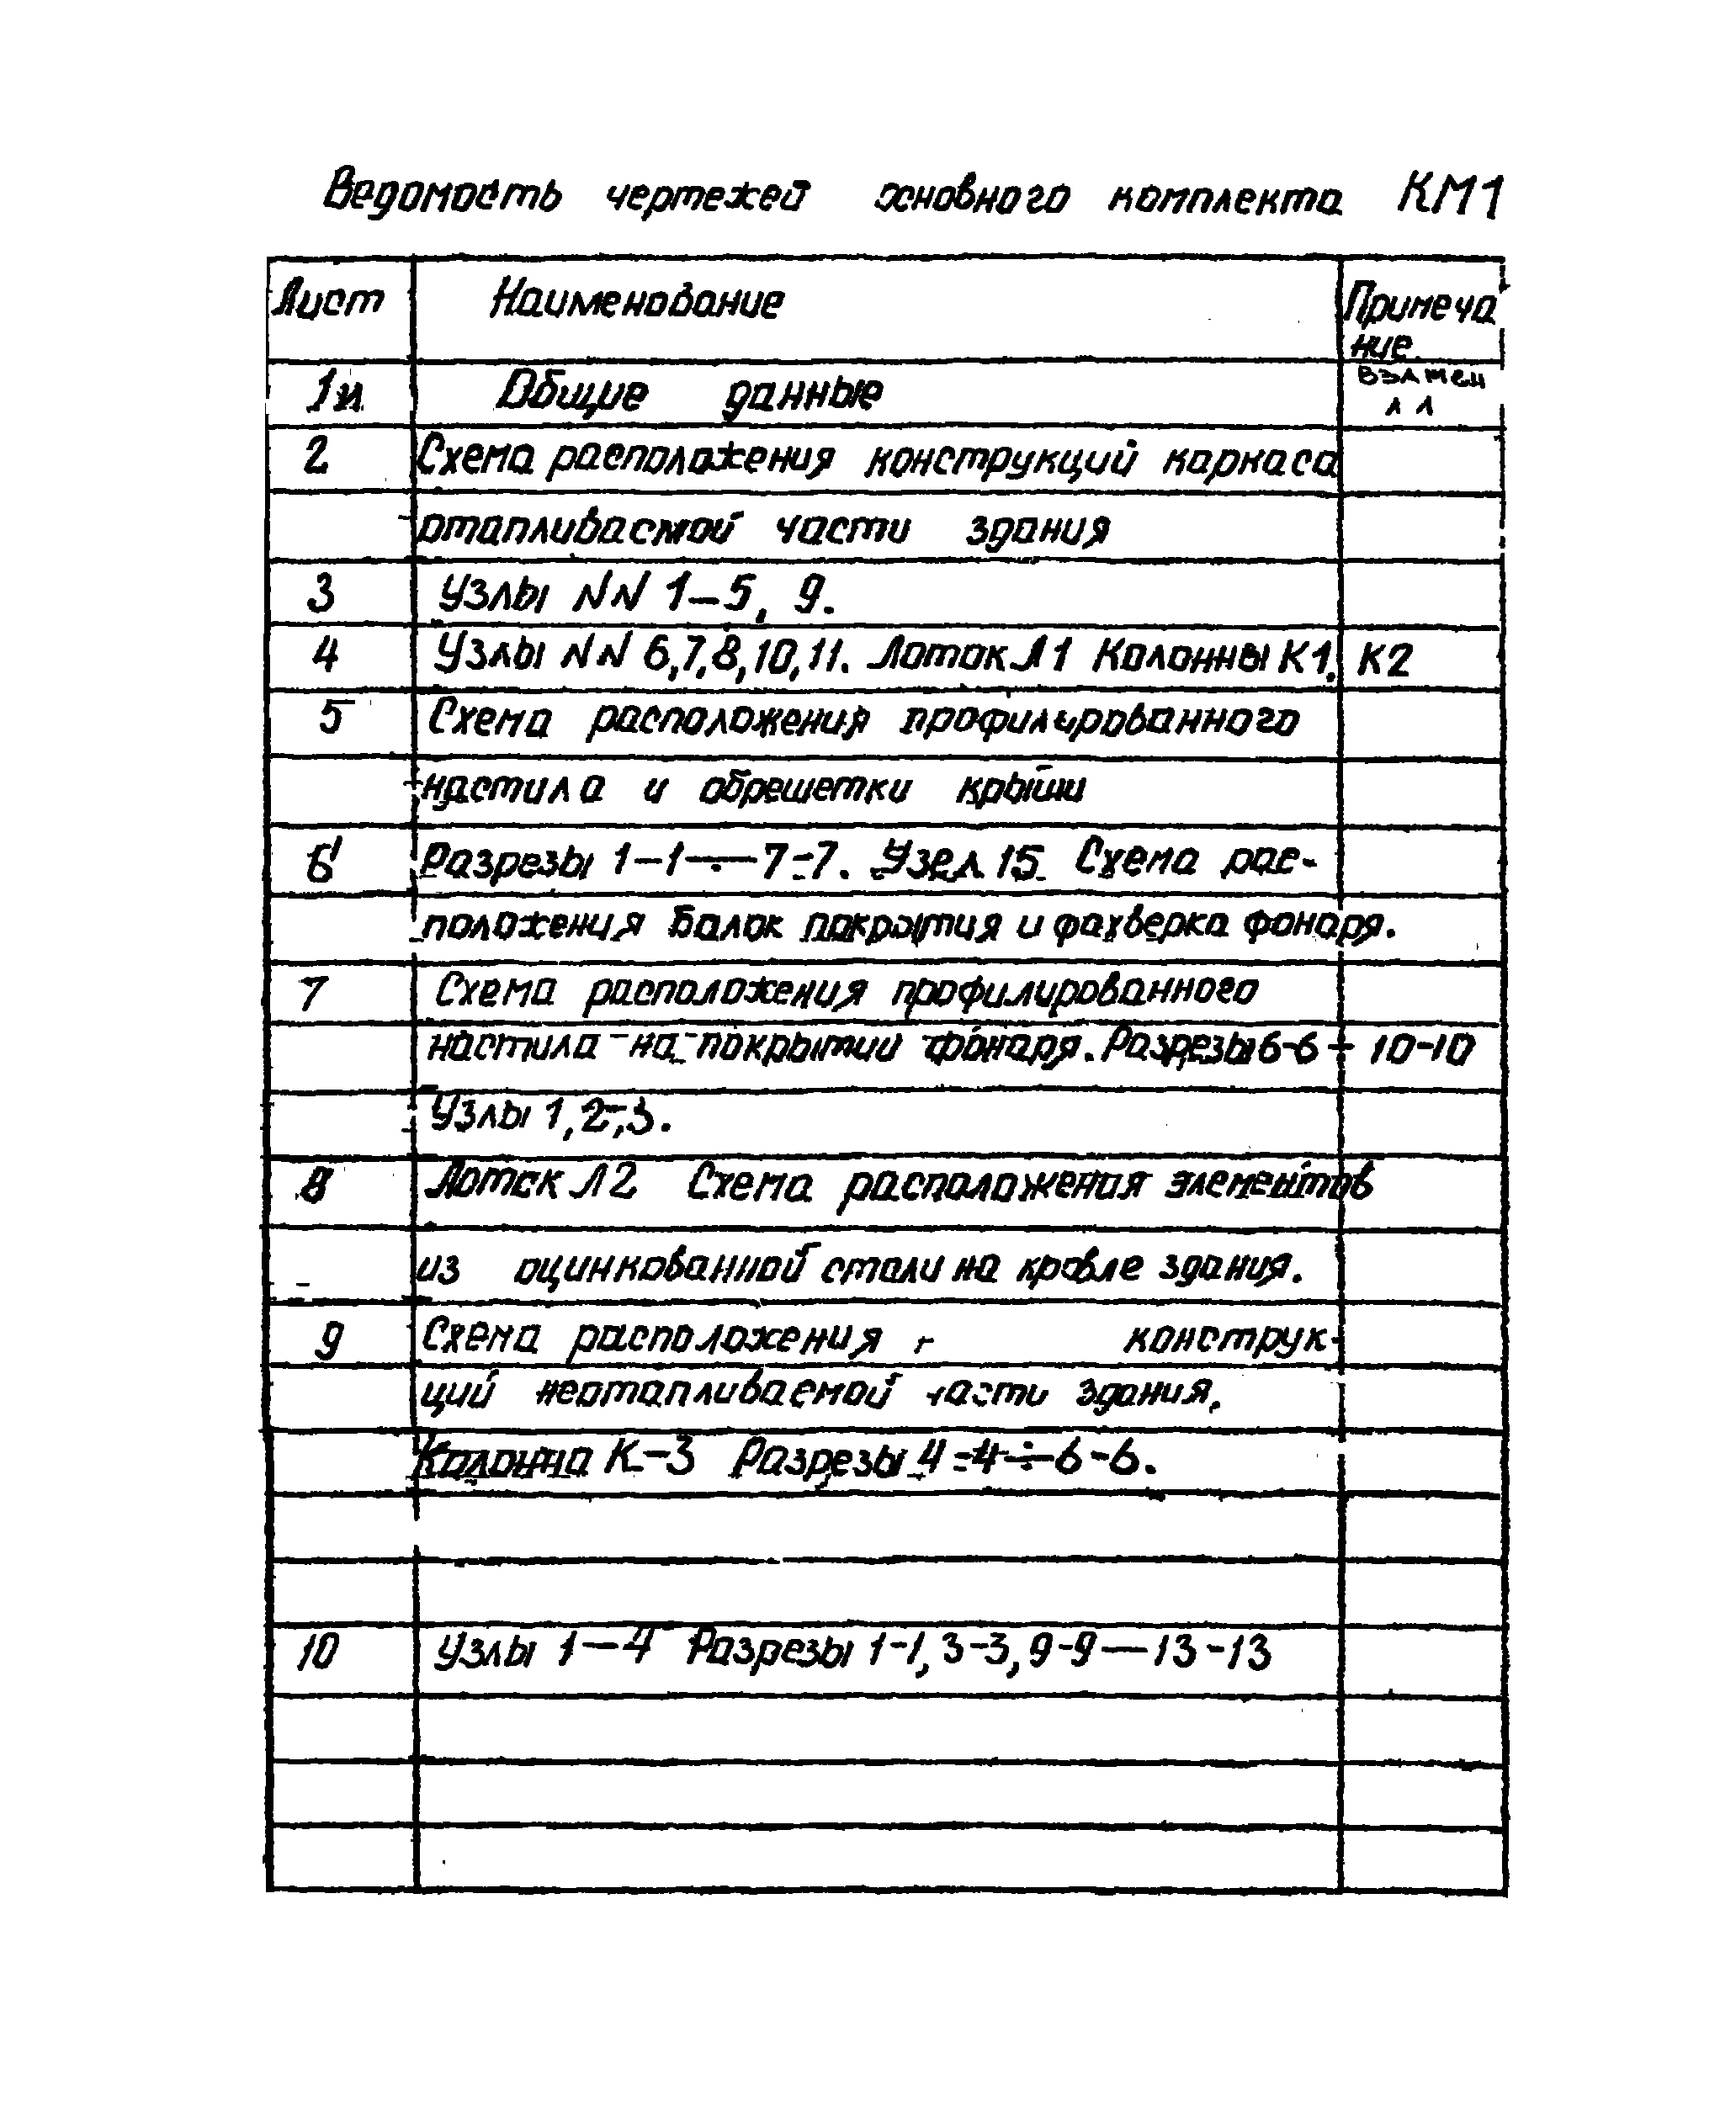 Ведомость чертежей основного комплекта КМ1
Лист Наименование Примеча
ние
1и Общие данные взамен
л 1
2 Схема расположения конструкций каркаса
отапливаемой части здания
3 Узлы NN 1-5, 9.
4 Узлы NN 6,7,8,10,11. Лоток Л1 Колонны К1, К2
5 Схема расположения профилированного
настила и обрешетки крыши
6 Разрезы 1-1÷7-7. Узел 15 Схема рас-
положения балок покрытия и фахверка фонаря.
7 Схема расположения профилированного
настила на покрытии фонаря. Разрезы 6-6 ÷ 10-10
Узлы 1,2,3.
8 Лоток Л2 Схема расположения элементов
из оцинкованной стали на кровле здания.
9 Схема расположения конструк-
ций неотапливаемой части здания.
Колонна К-3 Разрезы 4-4÷6-6.
10 Узлы 1-4 Разрезы 1-1, 3-3, 9-9—13-13